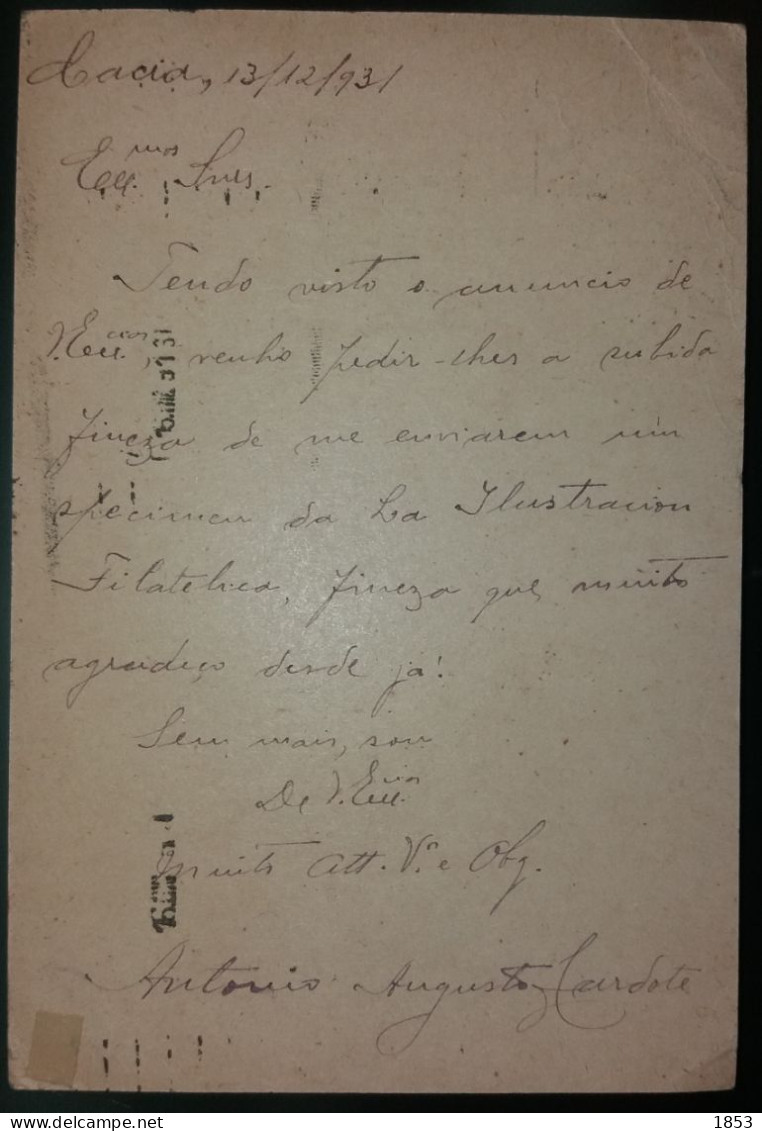 Cacia, 13/12/931
Exmos Snrs.
Tendo visto o anuncio de
V. Excias, venho pedir-lhes a subida
fineza de me enviarem um
specimen da La Ilustracion
Filatelica, fineza que muito
agradeço desde já!
Sem mais, sou
De V. Excias
Muito Att. Vor e Obg.
Antonio Augusto Cardote
1853